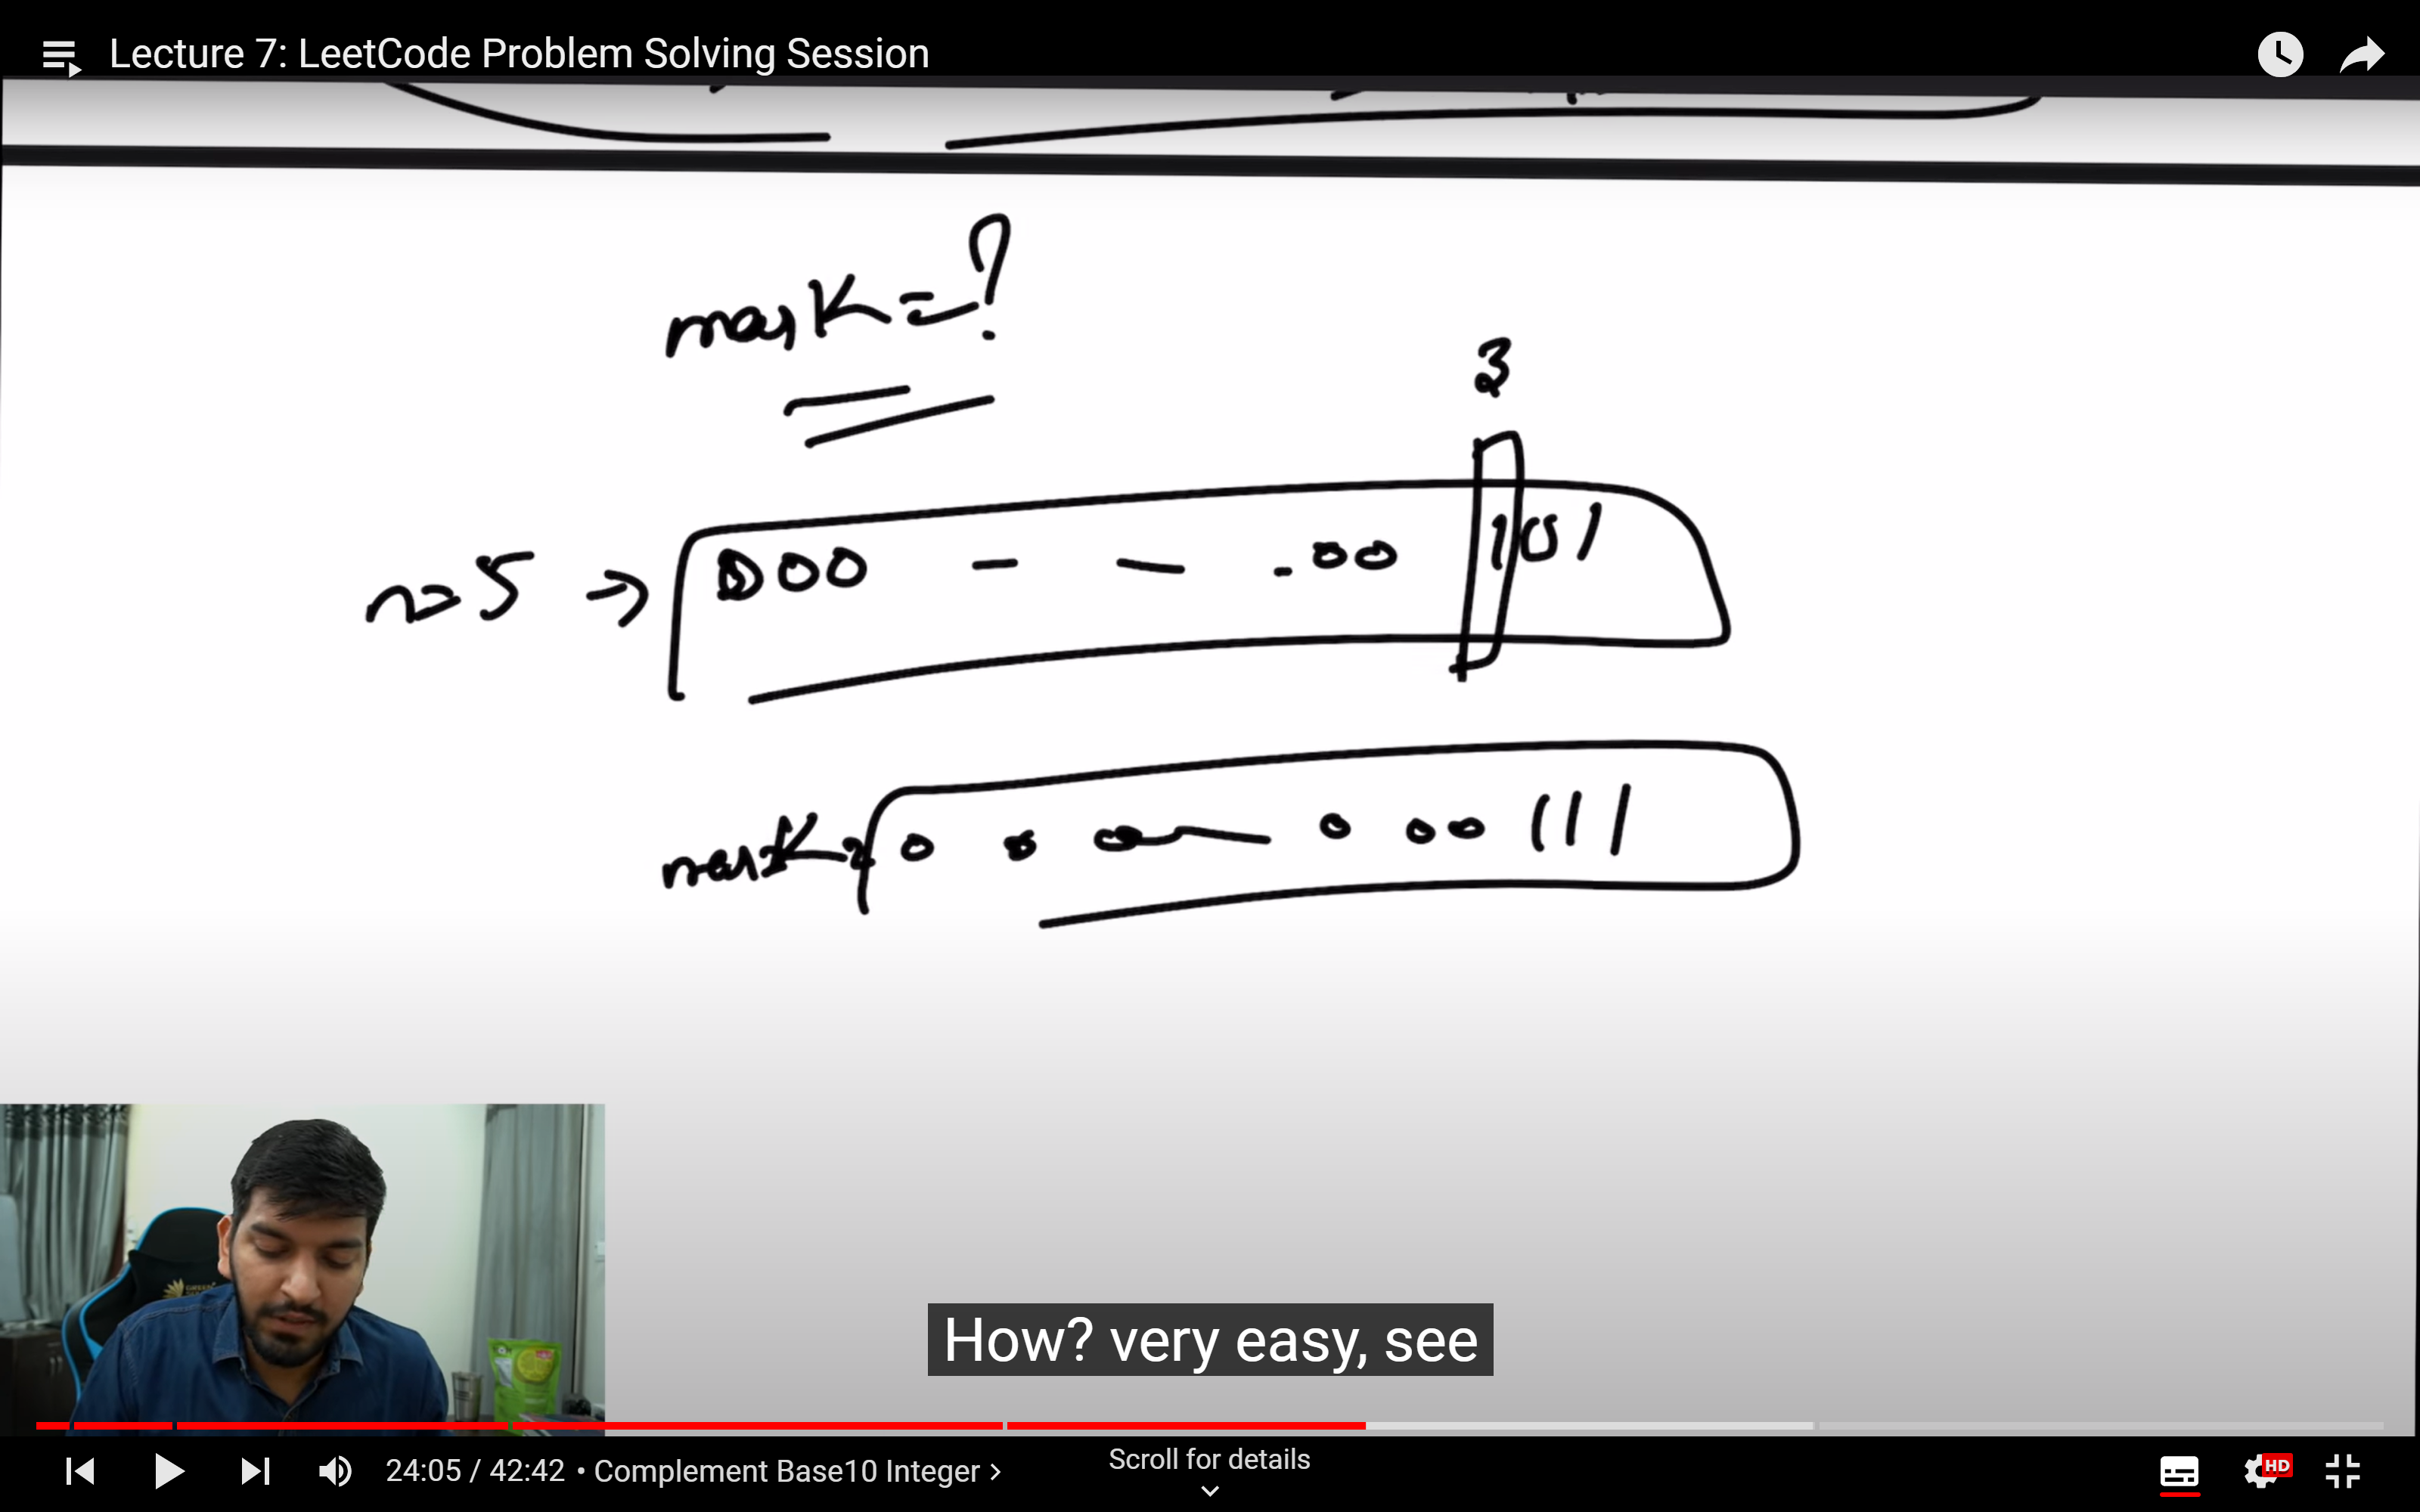 Lecture 7: LeetCode Problem Solving Session
mask=?
3
n=5 → 000 - - - 00 101
mask= 0 0 0 — 0 00 111
How? very easy, see
24:05 / 42:42 • Complement Base10 Integer >
Scroll for details
HD